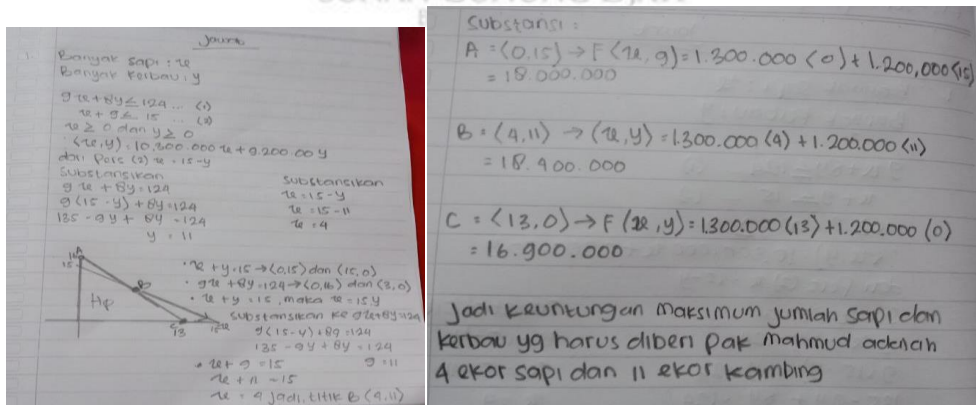 Jawab
1. Banyak sapi : x
Banyak kerbau : y
9x + 8y ≤ 124 ... (1)
x + y ≤ 15 ... (2)
x ≥ 0 dan y ≥ 0
(x, y) : 10.300.000 x + 9.200.00 y
dari Pers (2) x = 15 - y
Substansikan
9x + 8y = 124
9(15 - y) + 8y = 124
135 - 9y + 8y = 124
y = 11
Substansikan
x = 15 - y
x = 15 - 11
x = 4
A
15
Hp
B
C
13
15
x
• x + y = 15 → (0,15) dan (15,0)
• 9x + 8y = 124 → (0,16) dan (3,0)
• x + y = 15, maka x = 15 y
Substansikan ke 9x + 8y = 124
9(15 - y) + 8y = 124
135 - 9y + 8y = 124
y = 11
• x + y = 15
x + 11 = 15
x = 4 jadi, titik B (4,11)
Substansi :
A = (0,15) → F (x, y) = 1.300.000 (0) + 1.200,000 (15)
= 18.000.000
B = (4,11) → (x, y) = 1.300.000 (4) + 1.200.000 (11)
= 18.400.000
C = (13,0) → F (x, y) = 1.300.000 (13) + 1.200.000 (0)
= 16.900.000
Jadi keuntungan maksimum jumlah sapi dan
kerbau yg harus diberi pak mahmud adalah
4 ekor sapi dan 11 ekor kambing